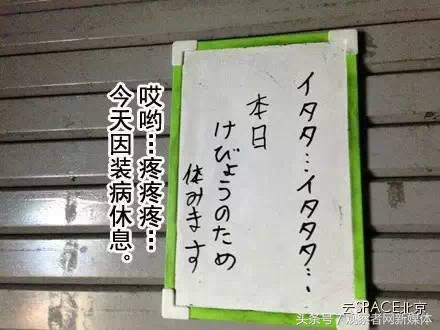 イタタ…イタタタ…
本日
けびょうのため
休みます
哎哟…疼疼疼…
今天因装病休息。
云SPACE北京
头条号/观察者网新媒体